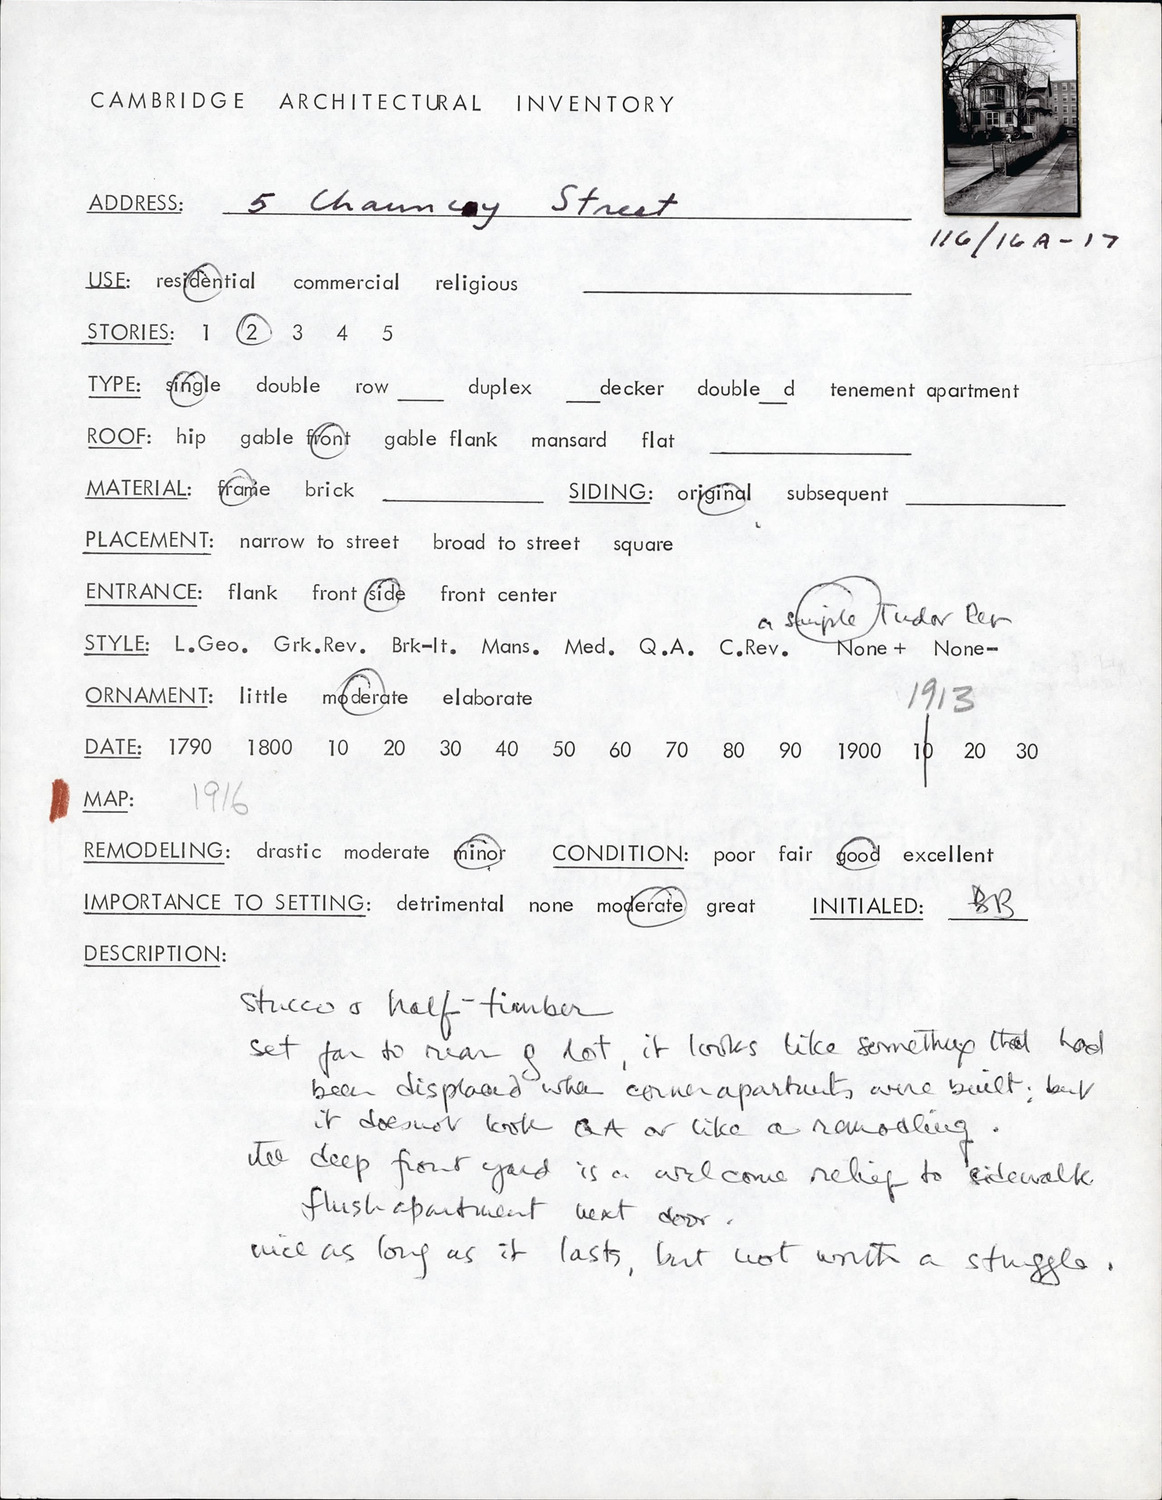 CAMBRIDGE ARCHITECTURAL INVENTORY
ADDRESS: 5 Chauncey Street
116/16A-17
USE: residential commercial religious
STORIES: 1 2 3 4 5
TYPE: single double row ___ duplex ___decker double__d tenement apartment
ROOF: hip gable front gable flank mansard flat
MATERIAL: frame brick SIDING: original subsequent
PLACEMENT: narrow to street broad to street square
ENTRANCE: flank front side front center
a simple Tudor Rev
STYLE: L.Geo. Grk.Rev. Brk-It. Mans. Med. Q.A. C.Rev. None+ None-
ORNAMENT: little moderate elaborate
1913
DATE: 1790 1800 10 20 30 40 50 60 70 80 90 1900 10 20 30
MAP: 1916
REMODELING: drastic moderate minor CONDITION: poor fair good excellent
IMPORTANCE TO SETTING: detrimental none moderate great INITIALED: BB
DESCRIPTION:
stucco & half-timber
set far to rear of lot, it looks like something that had
been displaced when corner apartments were built; but
it does not look QA or like a remodling.
the deep front yard is a welcome relief to sidewalk
flush apartment next door.
nice as long as it lasts, but not worth a stuggle.